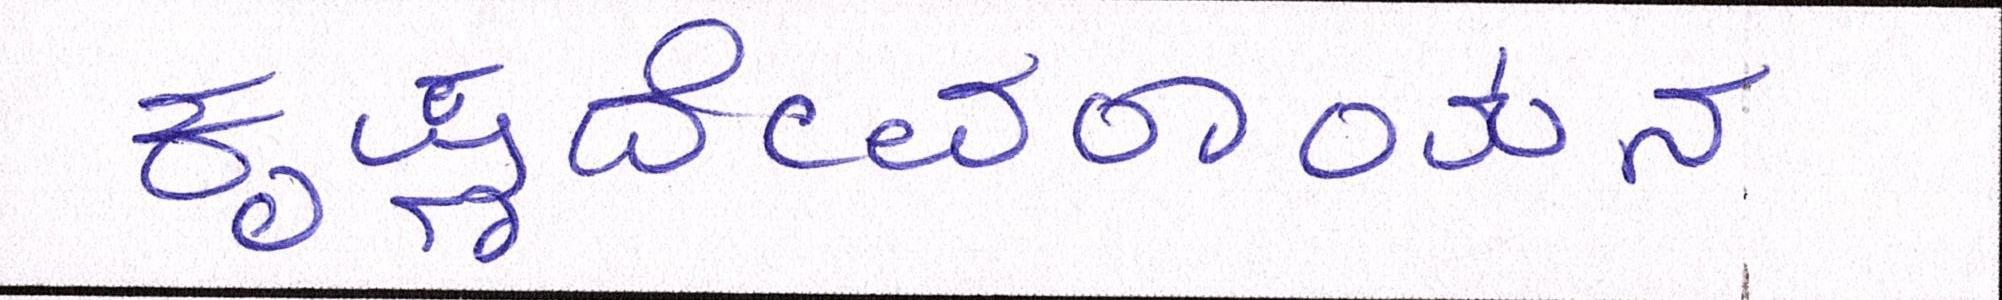 ಕೃಷ್ಣದೇವರಾಯನ